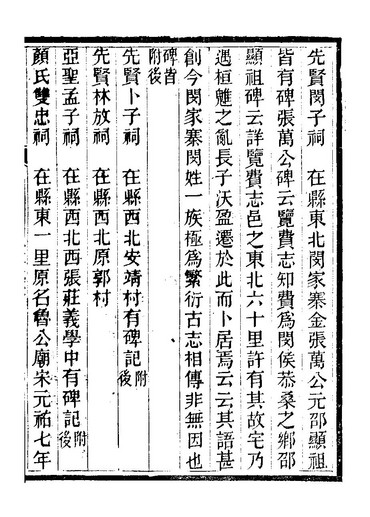 先賢閔子祠　在縣東北閔家寨金張萬公元邵顯祖
皆有碑張萬公碑云覽費志知費爲閔侯恭桑之鄉邵
顯祖碑云詳覽費志邑之東北六十里許有其故宅乃
遇桓魋之亂長子沃盈遷於此而卜居焉云云其語甚
創今閔家寨閔姓一族極爲繁衍古志相傳非無因也
碑皆附後
先賢卜子祠　在縣西北安靖村有碑記附後
先賢林放祠　在縣西北原郭村
亞聖孟子祠　在縣西北西張莊義學中有碑記附後
顏氏雙忠祠　在縣東一里原名魯公廟宋元祐七年